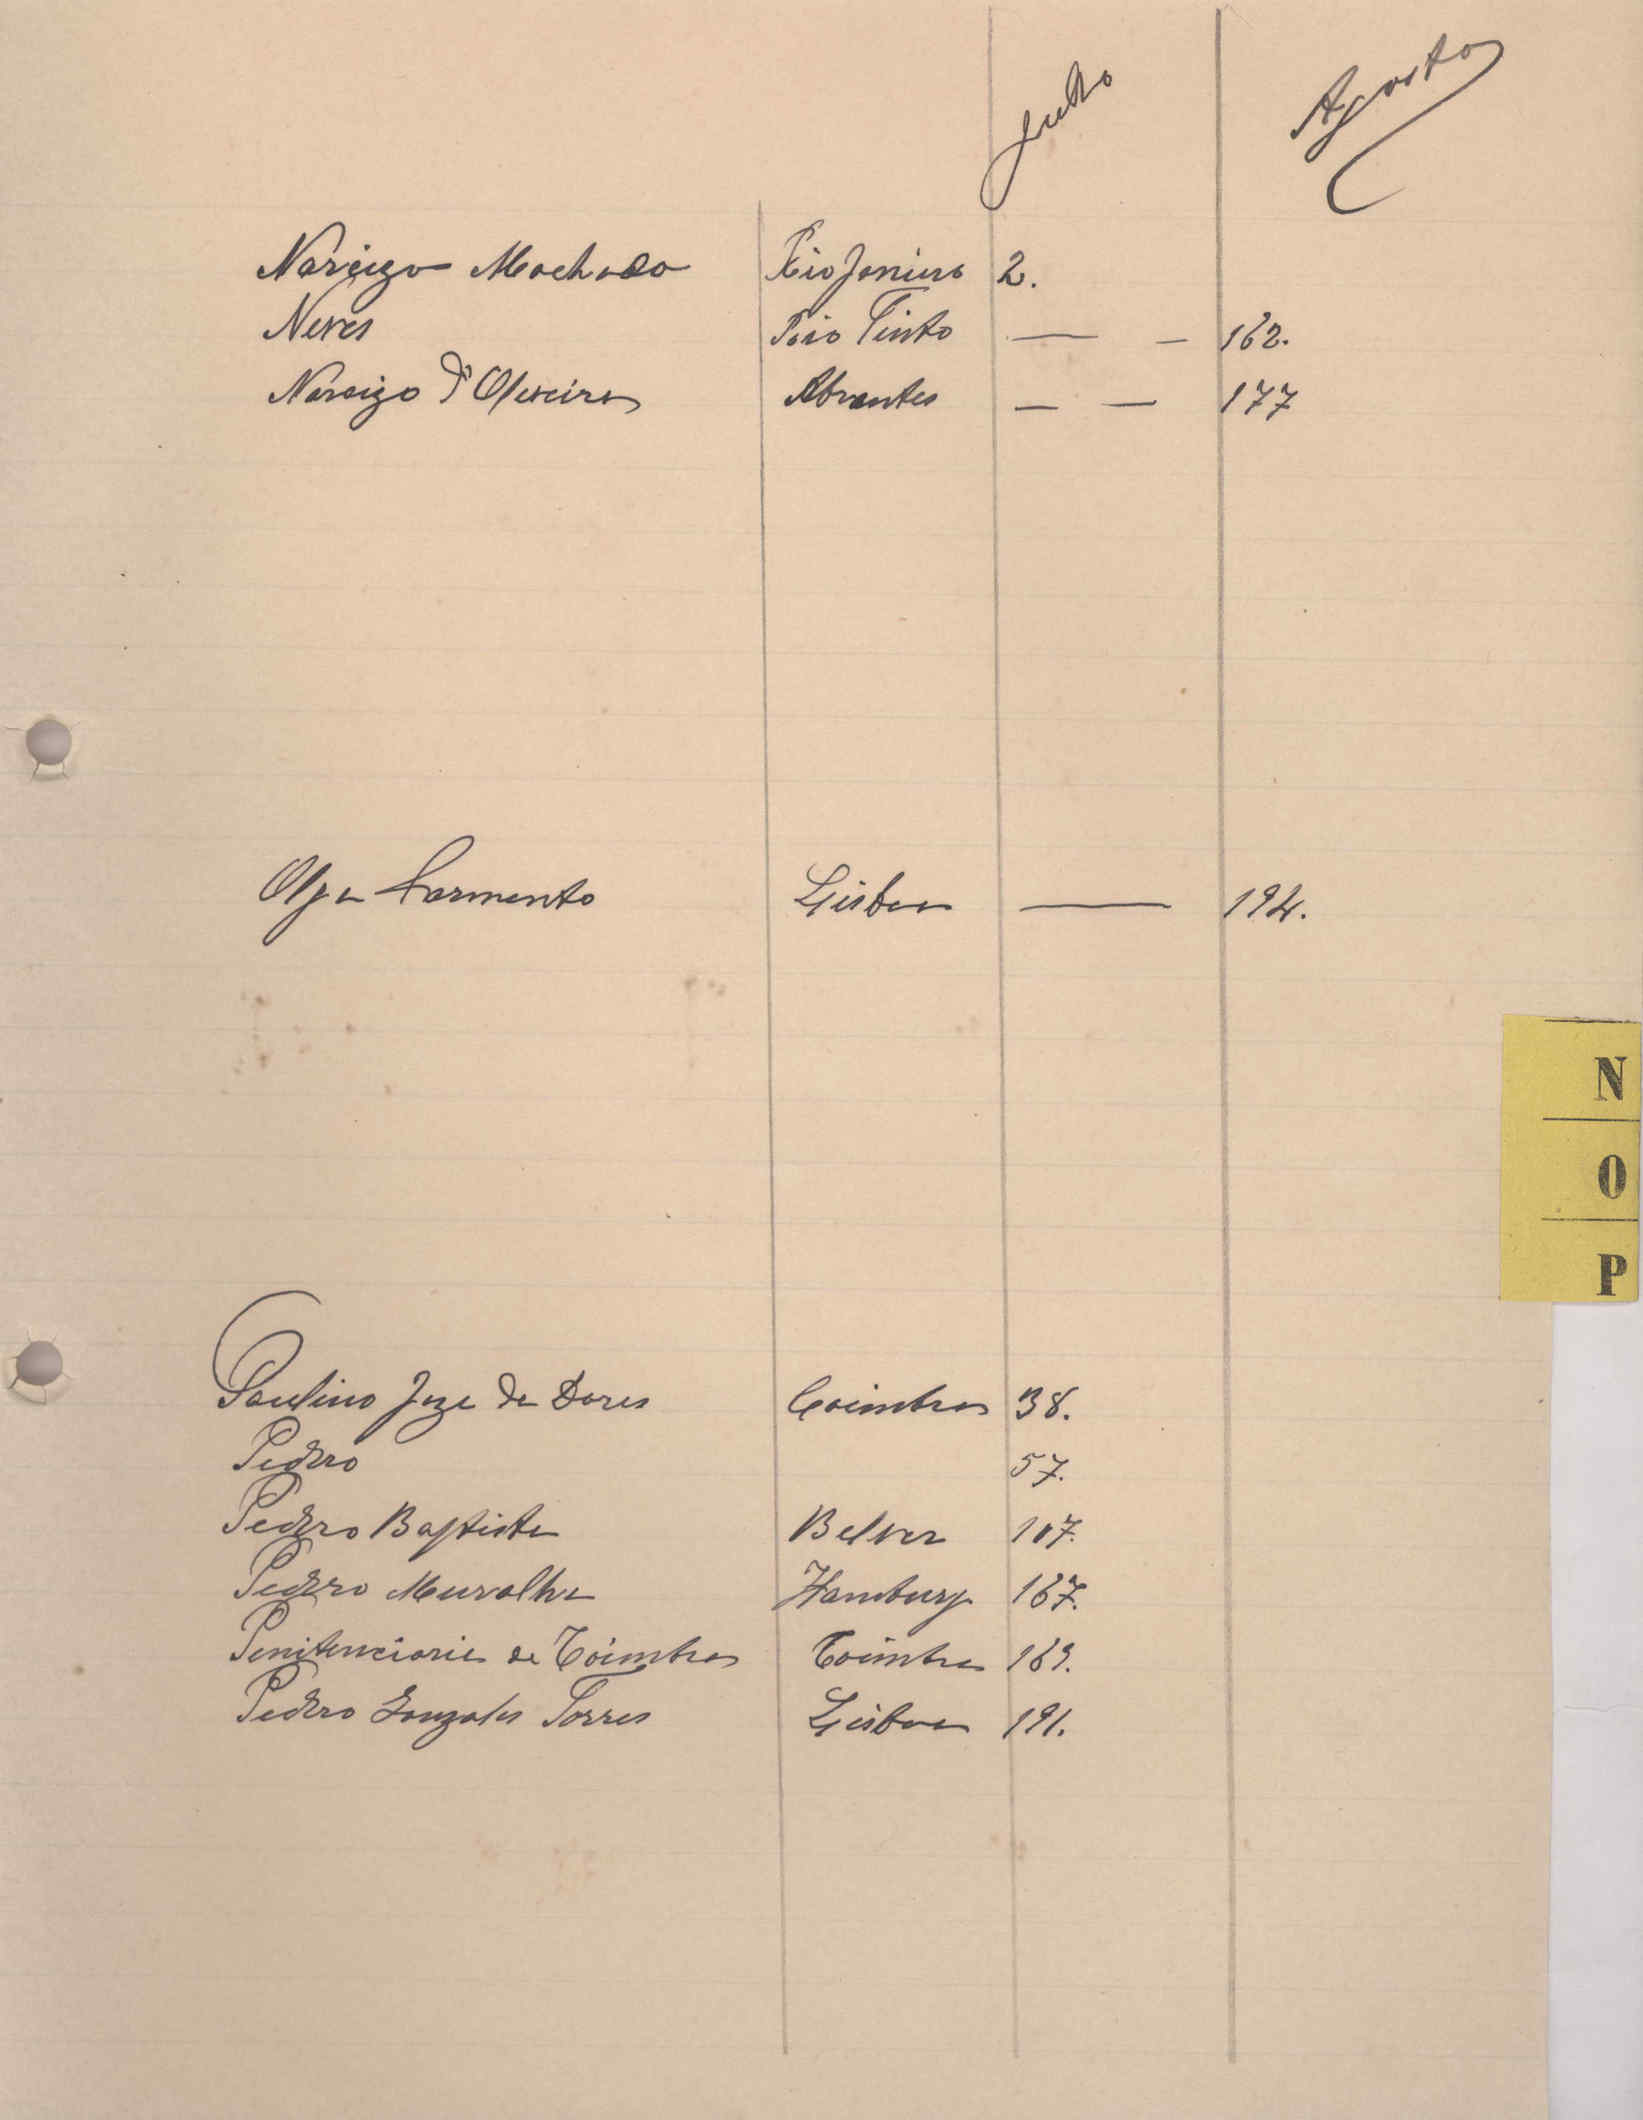 Julho Agosto
Narcizo Machado Rio Janiero 2.
Neves Rio Tinto — — 162.
Narcizo d'Oliveira Abrantes — — 177
Olga Sarmento Lisboa — 194.
N
O
P
Paulino Joze da Dores Coimbra 38.
Pedro 57.
Pedro Baptista Belver 107.
Pedro Muralha Hamburg 167.
Penitenciaria de Coimbra Coimbra 169.
Pedro Gonzales Torres Lisboa 191.